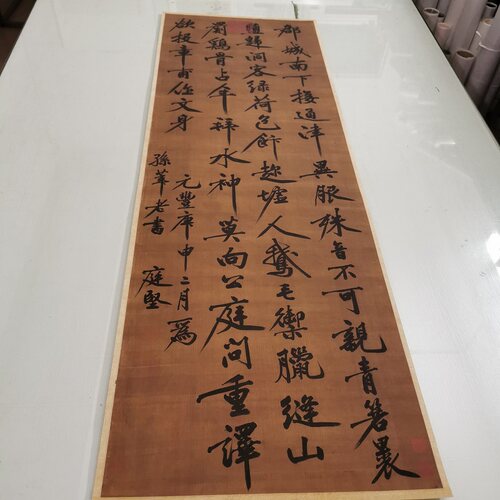 郡城南下接通津異服殊音不可親青箬裹
鹽歸洞客緑荷包飰趂墟人鵞毛禦臘縫山
罽鷄骨占年拜水神莫向公庭問重譯
欲投章甫作文身
元豐庚申二月為
孫莘老書 庭堅